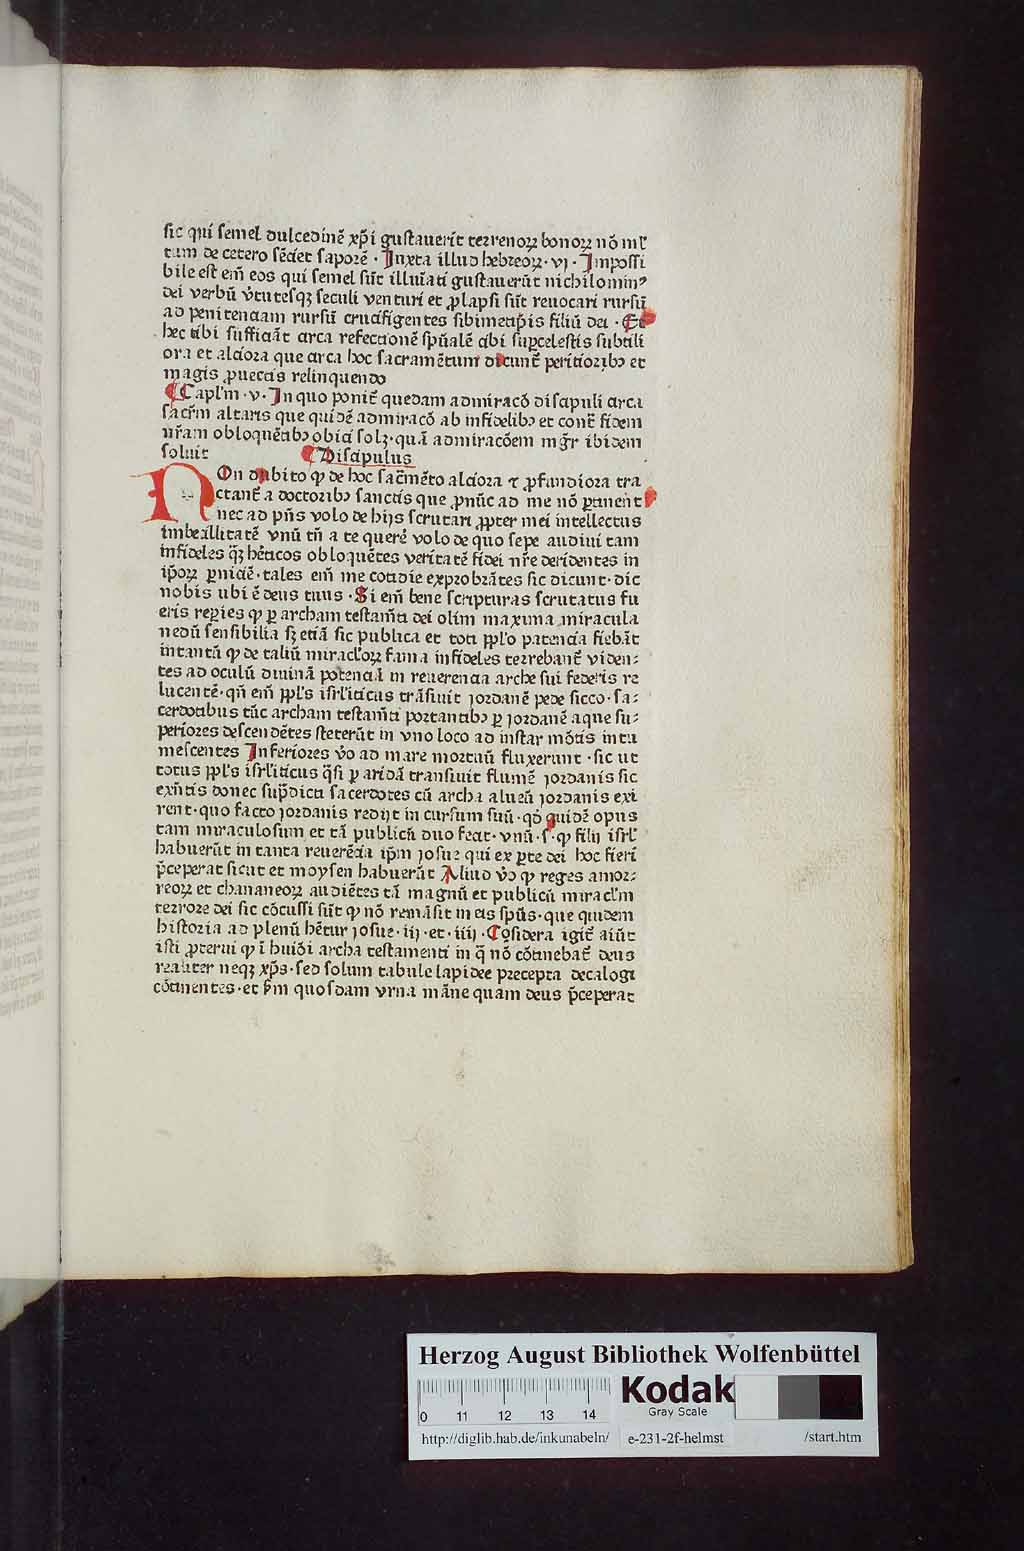 sic qui semel dulcedinē xp̄i gustauerit terrenoꝝ bonoꝝ nō ml̕
tum de cetero sēciet saporē · Iuxta illud hebreoꝝ · vj · Impossi
bile est em̄ eos qui semel sūt illuīati gustauerūt nichilomin⁹
dei verbū v̓tutesqꝫ seculi venturi et ꝓlapsi sūt reuocari rursū
ad penitenciam rursū crucifigentes sibimetip̄is filiū dei · Et
hec tibi sufficiāt circa refectionē sp̄ualē cibi suꝑcelestis subtili
ora et alciora que circa hoc sacramētum dicunt᷑ peritioribꝫ et
magis ꝓuectis relinquendo
Capl̕m · v · In quo ponit᷑ quedam admiracō discipuli circa
sacr̄m altaris que quidē admiracō ab infidelibꝫ et cont᷑ fidem
nr̄am obloquētibꝫ obici solꝫ · quā admiracōem mgr̄ ibidem
soluit Discipulus
NOn dubito ꝙ de hoc sac̄mēto alciora ⁊ ꝓfundiora tra
ctant᷑ a doctoribꝫ sanctis que ꝓnūc ad me nō ꝑtinent
nec ad pn̄s volo de hijs scrutari ꝓpter mei intellectus
imbecillitatē vnū tn̄ a te querē volo de quo sepe audiui tam
infideles qꝫ hēticos obloquētes veritatē fidei nr̄e deridentes in
ip̄oꝝ ꝑniciē · tales em̄ me cotidie exprobrātes sic dicunt · dic
nobis ubi ē deus tuus · Si em̄ bene scripturas scrutatus fu
eris reꝑies ꝙ ꝑ archam testam̄ti dei olim maxima miracula
nedū sensibilia sꝫ etiā sic publica et toti ppl̕o patencia fiebāt
intantū ꝙ de taliū miracl̕oꝝ fama infideles terrebant᷑ viden⸗
tes ad oculū diuinā potenciā in reuerencia arche sui federis re
lucentē · qn̄ em̄ ppl̕s isrl̕iticus trāsiuit iordanē pede sicco · sa⸗
cerdotibus tūc archam testam̄ti portantibꝫ ꝑ iordanē aque su⸗
periores descendētes steterūt in vno loco ad instar mōtis intu
mescentes Inferiores v̓o ad mare mortuū fluxerunt · sic ut
totus ppl̕s isrl̕iticus q̄si ꝑ aridā transiuit flumē jordanis sic
exn̄tis donec sup̄dicti sacerdotes cū archa alueū jordanis exi
rent · quo facto jordanis redijt in cursum suū · qd̓ quidē opus
tam miraculosum et tā publicū duo fecit · vnū · s̓ · ꝙ filij isrl̕
habuerūt in tanta reuerēcia ip̄m josue qui ex ꝑte dei hoc fieri
p̄ceperat sicut et moysen habuerūt Aliud v̓o ꝙ reges amor⸗
reoꝝ et chananeoꝝ audiētes tā magnū et publicū miracl̕m
terrore dei sic cōcussi sūt ꝙ nō remāsit in eis sp̄us · que quidem
historia ad plenū hētur josue · iij · et · iiij · Cōsidera igit᷑ aiūt
isti ꝓterui ꝙ ī huiōi archa testamenti in q̄ nō cōtinebat᷑ deus
realiter neqꝫ xp̄s · sed solum tabule lapidee precepta decalogi
cōtinentes · et sm̄ quosdam vrna māne quam deus p̄ceperat
Herzog August Bibliothek Wolfenbüttel
0 11 12 13 14
Kodak
Gray Scale
http://diglib.hab.de/inkunabeln/ e-231-2f-helmst /start.htm